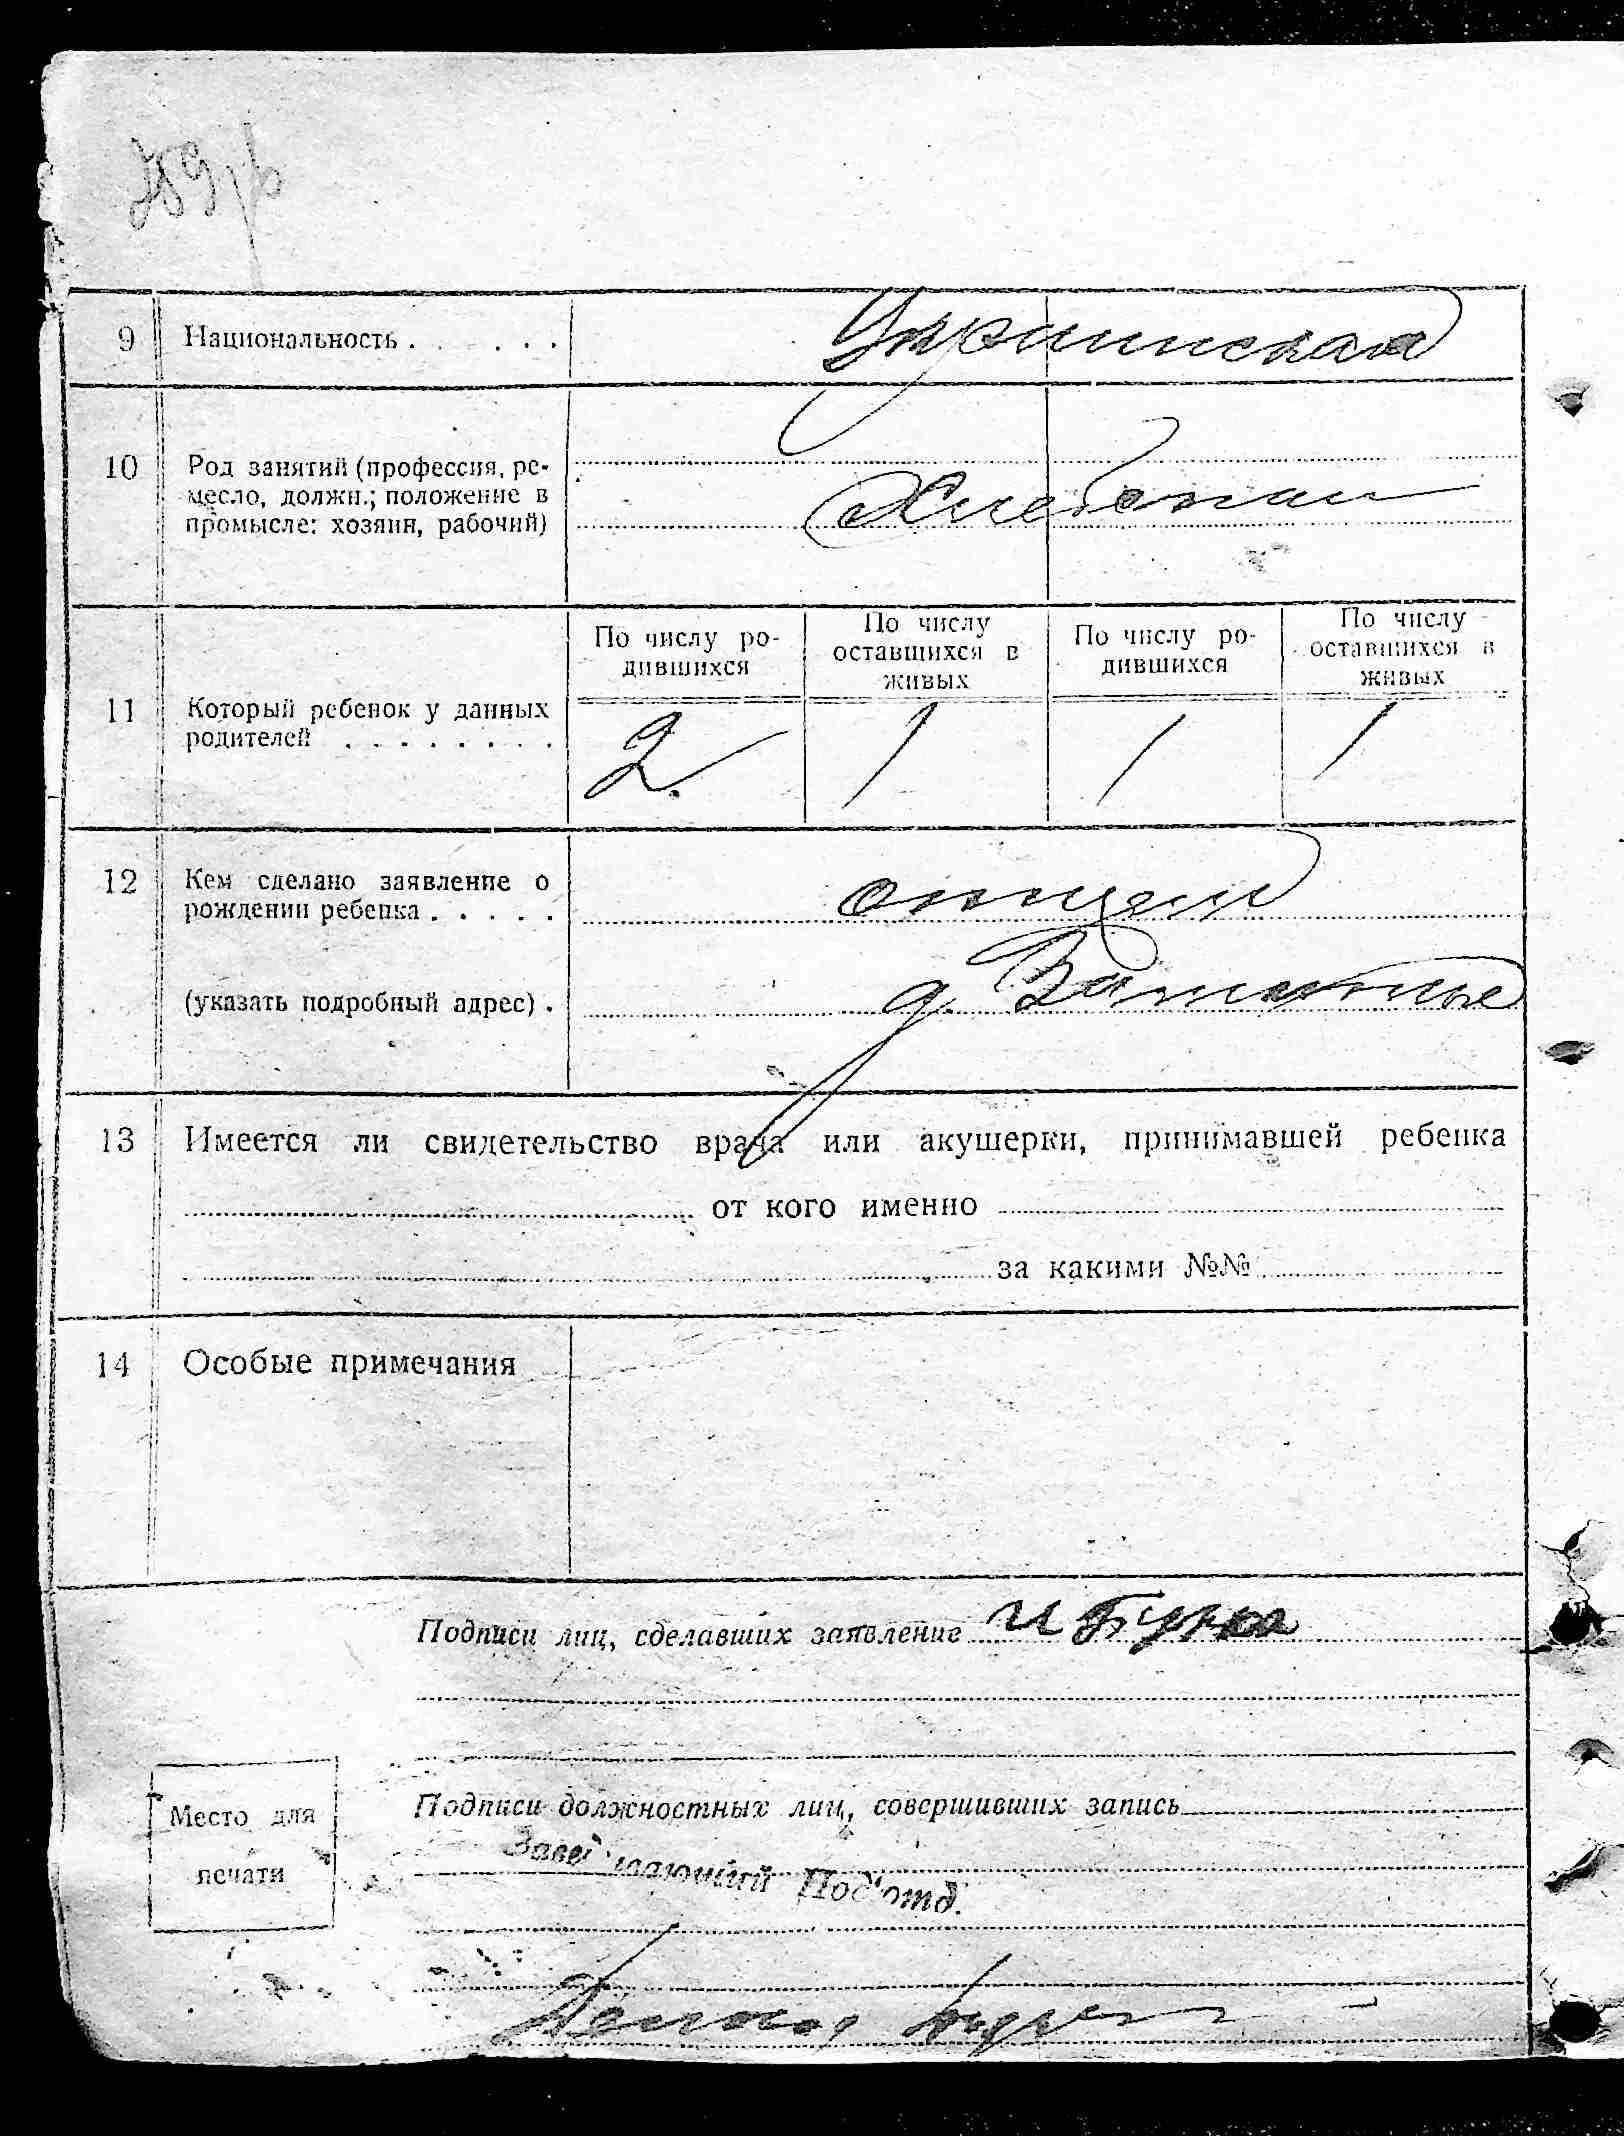 9 Национальность . . . . . . Украинская
10 Род занятий (профессия, ре-
месло, должн.; положение в
промысле: хозяин, рабочий)
Хлебопаш
11 Который ребенок у данных
родителей . . . . . . . . .
По числу ро-
дившихся
По числу
оставшихся в
живых
По числу ро-
дившихся
По числу
оставшихся в
живых
2. 1 1 1
12 Кем сделано заявление о
рождении ребенка . . . . . отцем
(указать подробный адрес) . д.
13 Имеется ли свидетельство врача или акушерки, принимавшей ребенка
от кого именно
за какими №№
14 Особые примечания
Подписи лиц, сделавших заявление
Подписи должностных лиц, совершивших запись
Заведывающий Под'отд.
Место для
печати